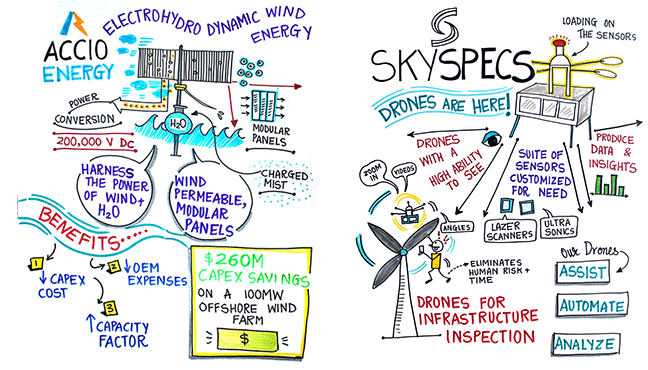 ACCIO
ENERGY
ELECTROHYDRO DYNAMIC WIND
ENERGY
POWER
CONVERSION
200,000 V DC
H2O
MODULAR
PANELS
CHARGED
MIST
HARNESS
THE POWER
OF WIND+
H2O
WIND
PERMEABLE,
MODULAR
PANELS
BENEFITS.....
1
↓ CAPEX
COST
2
↓ OEM
EXPENSES
3
↑ CAPACITY
FACTOR
$260M
CAPEX SAVINGS
ON A 100MW
OFFSHORE WIND
FARM
$
S
SKYSPECS
LOADING ON
THE SENSORS
DRONES ARE HERE!
DRONES
WITH A
HIGH ABILITY
TO SEE
SUITE OF
SENSORS
CUSTOMIZED
FOR NEED
PRODUCE
DATA &
INSIGHTS
ZOOM
IN
VIDEOS
ANGLES
LAZER
SCANNERS
ULTRA
SONICS
ELIMINATES
HUMAN RISK +
TIME
DRONES FOR
INFRASTRUCTURE
INSPECTION
Our Drones
ASSIST
AUTOMATE
ANALYZE